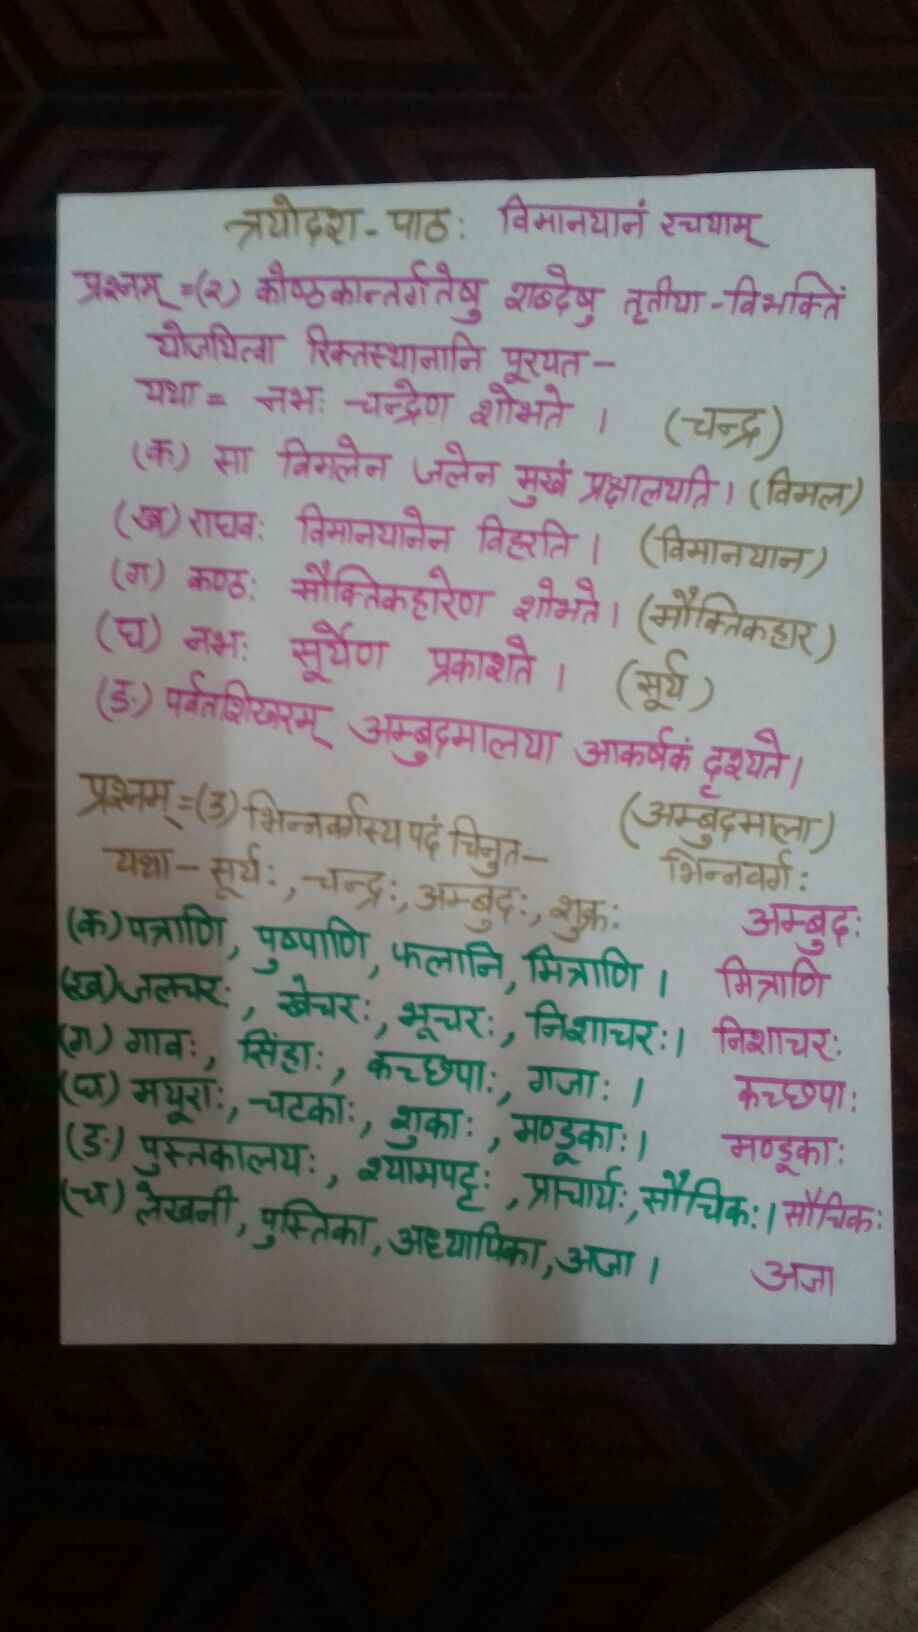 त्रयोदश - पाठः विमानयानं रचयाम्
प्रश्नम् =(२) कोष्ठकान्तर्गतेषु शब्देषु तृतीया - विभक्तिं
योजयित्वा रिक्तस्थानानि पूरयत -
यथा = नभः चन्द्रेण शोभते । (चन्द्र)
(क) सा विमलेन जलेन मुखं प्रक्षालयति । (विमल)
(ख) राघवः विमानयानेन विहरति । (विमानयान)
(ग) कण्ठः मौक्तिकहारेण शोभते । (मौक्तिकहार)
(घ) नभः सूर्येण प्रकाशते । (सूर्य)
(ङ) पर्वतशिखरम् अम्बुदमालया आकर्षकं दृश्यते ।
(अम्बुदमाला)
प्रश्नम् =(3) भिन्नवर्गस्य पदं चिनुत - भिन्नवर्गः
यथा - सूर्यः, चन्द्रः, अम्बुदः, शुक्रः अम्बुदः
(क) पत्राणि, पुष्पाणि, फलानि, मित्राणि । मित्राणि
(ख) जलचरः, खेचरः, भूचरः, निशाचरः । निशाचरः
(ग) गावः, सिंहाः, कच्छपाः, गजाः । कच्छपाः
(घ) मयूराः, चटकाः, शुकाः, मण्डूकाः । मण्डूकाः
(ङ) पुस्तकालयः, श्यामपट्टः, प्राचार्यः, सौचिकः । सौचिकः
(च) लेखनी, पुस्तिका, अध्यापिका, अजा । अजा